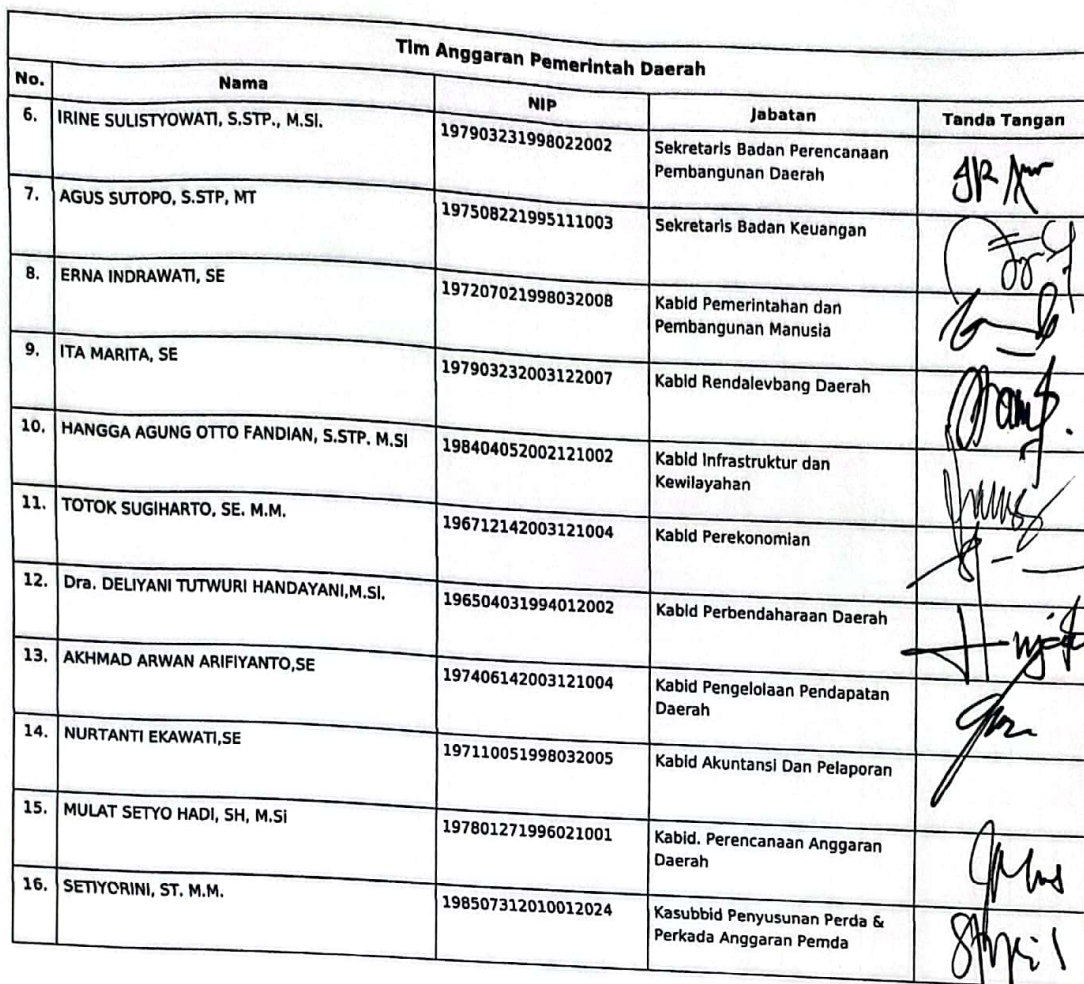 Tim Anggaran Pemerintah Daerah
No. Nama NIP Jabatan Tanda Tangan
6. IRINE SULISTYOWATI, S.STP., M.Si. 197903231998022002 Sekretaris Badan Perencanaan
Pembangunan Daerah
7. AGUS SUTOPO, S.STP, MT 197508221995111003 Sekretaris Badan Keuangan
8. ERNA INDRAWATI, SE 197207021998032008 Kabid Pemerintahan dan
Pembangunan Manusia
9. ITA MARITA, SE 197903232003122007 Kabid Rendalevbang Daerah
10. HANGGA AGUNG OTTO FANDIAN, S.STP. M.SI 198404052002121002 Kabid Infrastruktur dan
Kewilayahan
11. TOTOK SUGIHARTO, SE. M.M. 196712142003121004 Kabid Perekonomian
12. Dra. DELIYANI TUTWURI HANDAYANI,M.Si. 196504031994012002 Kabid Perbendaharaan Daerah
13. AKHMAD ARWAN ARIFIYANTO,SE 197406142003121004 Kabid Pengelolaan Pendapatan
Daerah
14. NURTANTI EKAWATI,SE 197110051998032005 Kabid Akuntansi Dan Pelaporan
15. MULAT SETYO HADI, SH, M.Si 197801271996021001 Kabid. Perencanaan Anggaran
Daerah
16. SETIYORINI, ST. M.M. 198507312010012024 Kasubbid Penyusunan Perda &
Perkada Anggaran Pemda